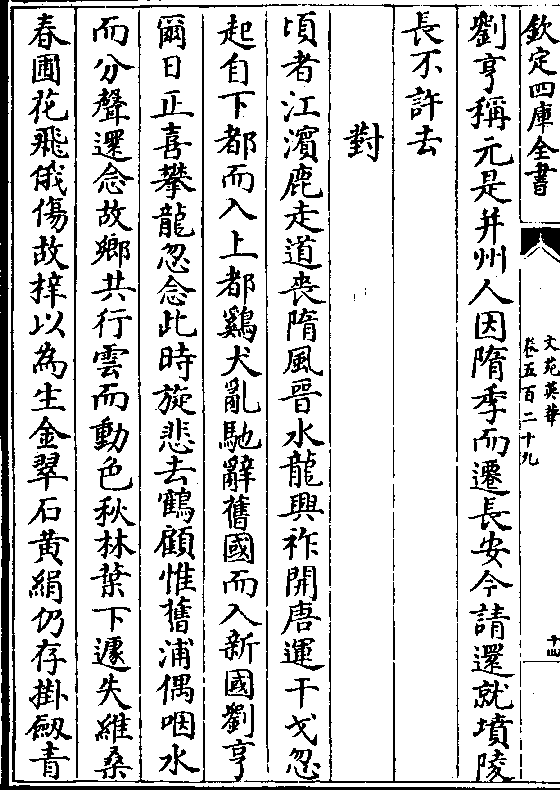 欽定四庫全書
文苑英華
卷五百二十九
十四
劉亨稱元是并州人因隋季而遷長安今請還就墳陵
長不許去
對
頃者江濱鹿走道喪隋風晉水龍興祚開唐運干戈忽
起自下都而入上都鷄犬亂馳辭舊國而入新國劉亨
爾日正喜攀龍忽念此時旋悲去鶴顧惟舊浦偶咽水
而分聲還念故鄉共行雲而動色秋林葉下遽失維桑
春圃花飛俄傷故梓以為生金翠石黃絹仍存掛劔青